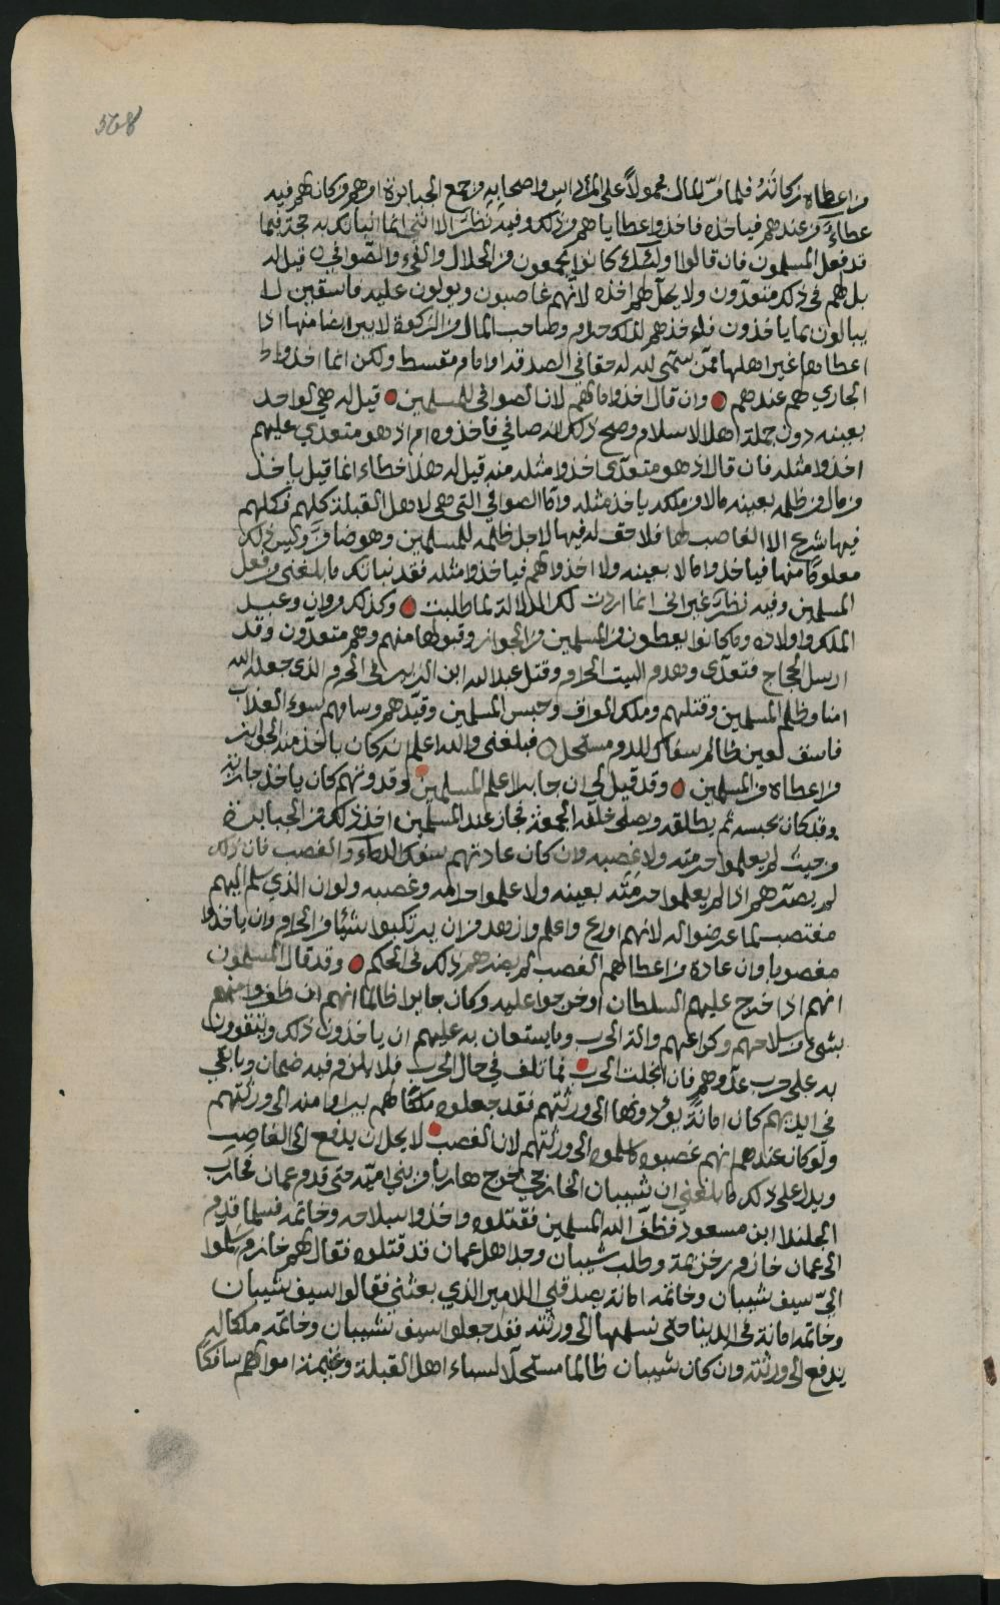 568
من اعطاه زكاته فلما مر المال محمولا على المرداس واصحابه من جمع الجبابرة امرهم من كان لهم فيه
عطاء من عندهم فياخذه فاخذوا عطاياهم من ذلك وفيه نظر الا انني انما انبأتك به حجة فيما
قد فعل المسلمون فان قالوا اولئك كانوا يجمعون من الحلال والفيء والصوافي قيل له
بل هم في ذلك متعدون ولا يحل لهم اخذه لانهم غاصبون ويولون عليه فاسقين لا
يبالون بما ياخذون فاخذهم لذلك حرام وصاحب المال من الزكوة لا يبرا ايضا منها اذا
اعطاها غير اهلها ممن سمى الله له حقا في الصدقة او امام مقسط ولكن انما اخذوا
الجاري لهم عندهم وان قال اخذوا مالهم لان الصوافي للمسلمين قيل له هي لواحد
بعينه دون جملة اهل الاسلام وصح ذلك انه صافي فاخذوه ام اذ هو متعدي عليهم
اخذوا مثله فان قال اذ هو متعدى اخذوا مثله منه قيل له هذا خطاء انما قيل ياخذ
من مال من ظلمه بعينه مالا من ملكه ياخذ مثله واما الصوافي التي هي لاهل القبلة كلهم فكلهم
فيها شرع الا الغاصب لها فلا حق له فيها لاجل ظلمه للمسلمين وهو ضامن وليس ذلك
معلوما منها فياخذوا مالا بعينه ولا اخذوا لهم فياخذوا مثله فقد نبأتك ما بلغني من فعل
المسلمين وفيه نظر غير اني انما اردت لك الدلالة لما طلبت وكذلك مروان وعبد
الملك واولاده وما كانوا يعطون من المسلمين من الجوائز وقبولها منهم وهم متعدون وقد
ارسل الحجاج فتعدى وهدم البيت الحرام وقتل عبدالله ابن الزبير في الحرم الذي جعله الله
امنا وظلم المسلمين وقتلهم وملك العراق وحبس المسلمين وقيدهم وسامهم سوء العذاب
فاسق لعين ظالم سفاك للدم مستحل فبلغني والله اعلم انه كان ياخذ منه الجوايز
من اعطاه من المسلمين وقد قيل لي ان جابرا علم المسلمين وقدوتهم كان ياخذ جايزته
وقد كان يحبسه ثم يطلقه ويصلي خلفه الجمعة فجاز عند المسلمين اخذ ذلك من الجبابرة
من حيث لم يعلموا حرمته ولا غصبه وان كان عادتهم سفك الدماء والغصب فان ذلك
لم يضرهم اذا لم يعلموا حرمته بعينه ولا علموا حرامه وغصبه ولو ان الذي سلم اليهم
مغتصب لما عرضوا له لانهم اورع واعلم وازهد من ان يرتكبوا شيئا من الحرام وان ياخذوا
مغصوبا وان عادة من اعطاهم الغصب لم يضرهم ذلك في الحكم وقد قال المسلمون
انهم اذا خرج عليهم السلطان او خرجوا عليه وكان جابرا ظالما انهم ان ظفروا منهم
بشيء من سلاحهم وكراعهم والة الحرب وما يستعان به عليهم ان ياخذون ذلك ويتقوون
به على حرب عدوهم فان انجلت الحرب فما تلف في حال الحرب فلا يلزم فيه ضمان وما بقي
في ايديهم كان امانة يؤدونها الى ورثتهم فقد جعلوه ملكا لهم يبروا منه الى ورثتهم
ولو كان عندهم انهم غصبوه ما سلموه الى ورثتهم لان الغصب لا يحل ان يدفع الى الغاصب
ويدل على ذلك ما بلغني ان شيبان الخارجي خرج هاربا من بني امية حتى قدم عمان فحارب
الجلندا ابن مسعود فظفر الله المسلمين فقتلوه واخذوا سلاحه وخاتمه فلما قدم
الى عمان خازم بن خزيمة وطلب شيبان وجد اهل عمان قد قتلوه فقال لهم خازم سلموا
الي سيف شيبان وخاتمه امانة يصدقني الامير الذي بعثني فقالوا سيف شيبان
وخاتمه امانة في ايدينا حتى نسلمها الى ورثته فقد جعلوا سيف شيبان وخاتمه ملكا له
يدفع الى ورثته وان كان شيبان ظالما مستحلا لسباء اهل القبلة وغنيمة اموالهم سافكا